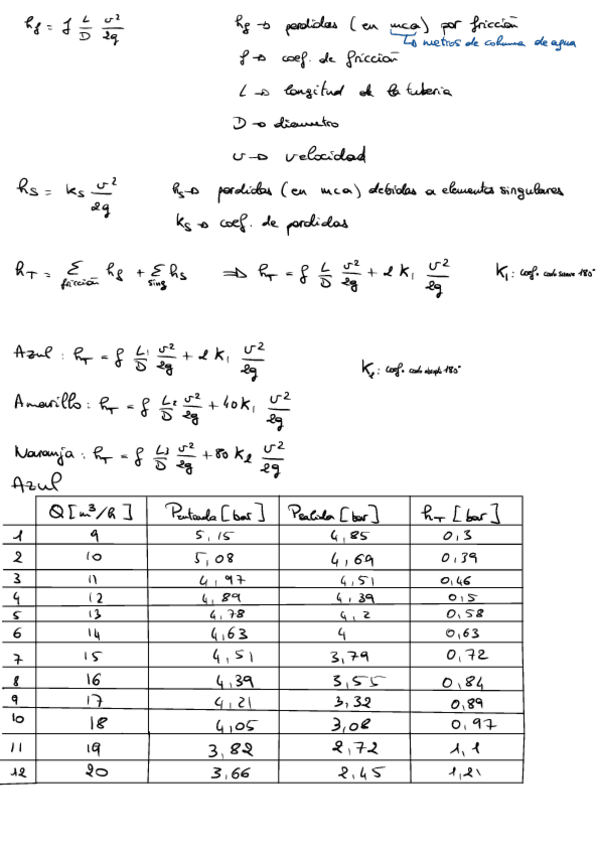 hf = f L/D v²/2g hf → perdidas (en mca) por fricción
↳ metros de columna de agua
f → coef. de fricción
L → longitud de la tuberia
D → diametro
v → velocidad
hs = ks v²/2g hs → perdidas (en mca) debidas a elementos singulares
ks → coef. de perdidas
hT = Σ fricción hf + Σ sing hs ⇒ hT = f L/D v²/2g + 2 K1 v²/2g K1: coef. codo suave 180°
Azul: hT = f L1/D v²/2g + 2 K1 v²/2g K2: coef. codo abrupt. 180°
Amarillo: hT = f L2/D v²/2g + 40 K1 v²/2g
Naranja: hT = f L3/D v²/2g + 80 K2 v²/2g
Azul
Q [m³/h] Pentrada [bar] Psalida [bar] hT [bar]
1 9 5,15 4,85 0,3
2 10 5,08 4,69 0,39
3 11 4,97 4,51 0,46
4 12 4,89 4,39 0,5
5 13 4,78 4,2 0,58
6 14 4,63 4 0,63
7 15 4,51 3,79 0,72
8 16 4,39 3,55 0,84
9 17 4,21 3,32 0,89
10 18 4,05 3,08 0,97
11 19 3,82 2,72 1,1
12 20 3,66 2,45 1,21